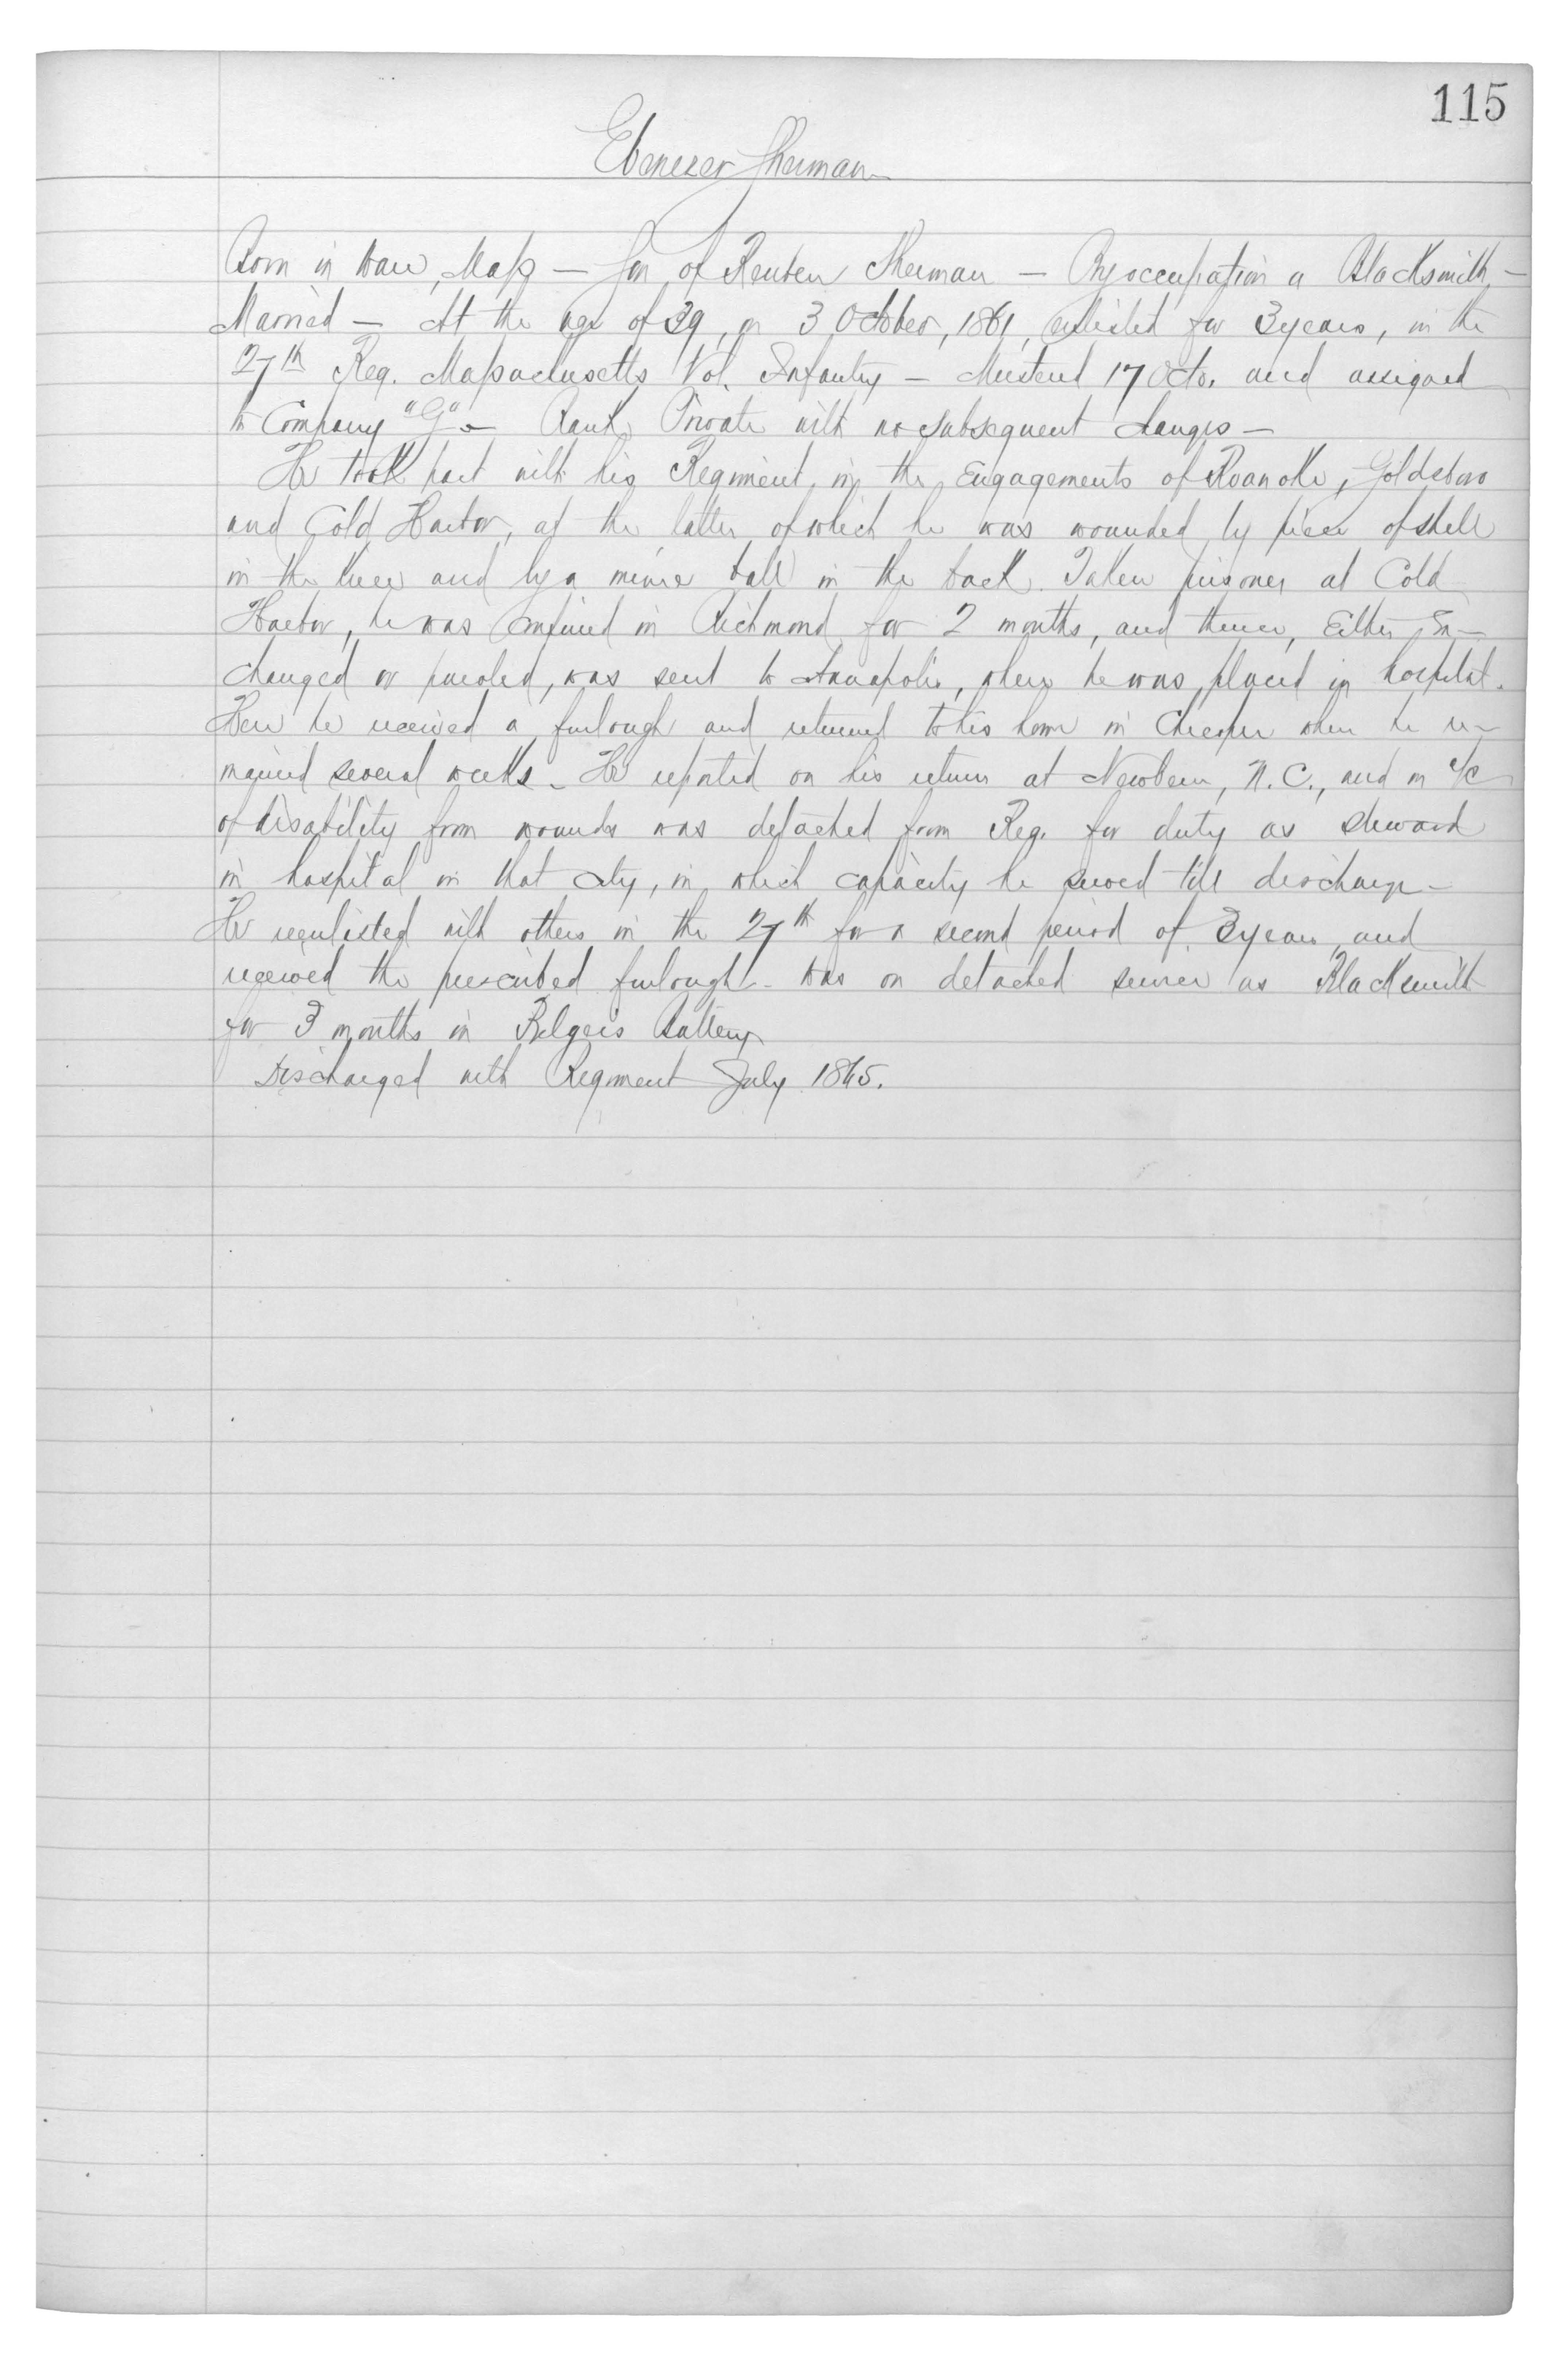 115
Ebenezer Sherman
Born in Ware, Mass — Son of Reuben Sherman — By occupation a Blacksmith —
Married — At the age of 39, on 3 October, 1861, enlisted for 3 years, in the
27th Reg. Massachusetts Vol. Infantry — Mustered 17 Octo. and assigned
to Company "G" — Rank Private with no subsequent changes —
He took part with his Regiment in the Engagements of Roanoke, Goldsboro
and Cold Harbor, at the latter of which he was wounded by piece of shell
in the knee and by a minie ball in the back. Taken prisoner at Cold
Harbor, he was confined in Richmond for 2 months, and thence, Either Ex-
changed or paroled, was sent to Annapolis, where he was placed in hospital.
Here he received a furlough and returned to his home in Chester where he re-
mained several weeks — He reported on his return at Newbern, N.C., and on a/c
of disability from wounds was detached from Reg. for duty as steward
in hospital in that city, in which capacity he served till discharge —
He reenlisted with others in the 27th for a second period of 3 years and
received the prescribed furlough — was on detached service as Blacksmith
for 3 months in Belgers Battery
Discharged with Regiment July 1865.